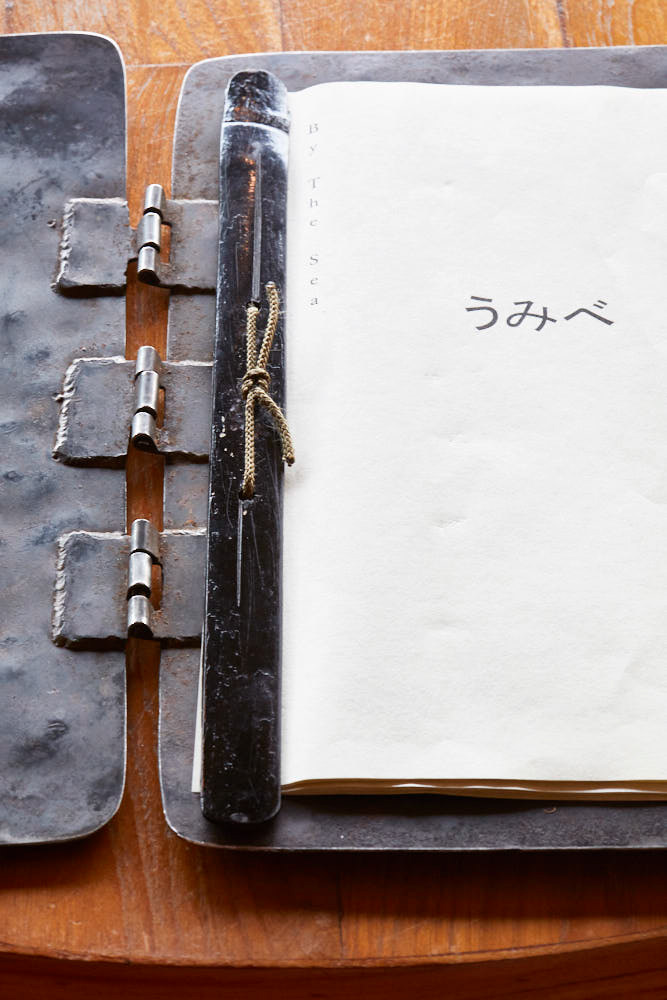 By The Sea
うみべ